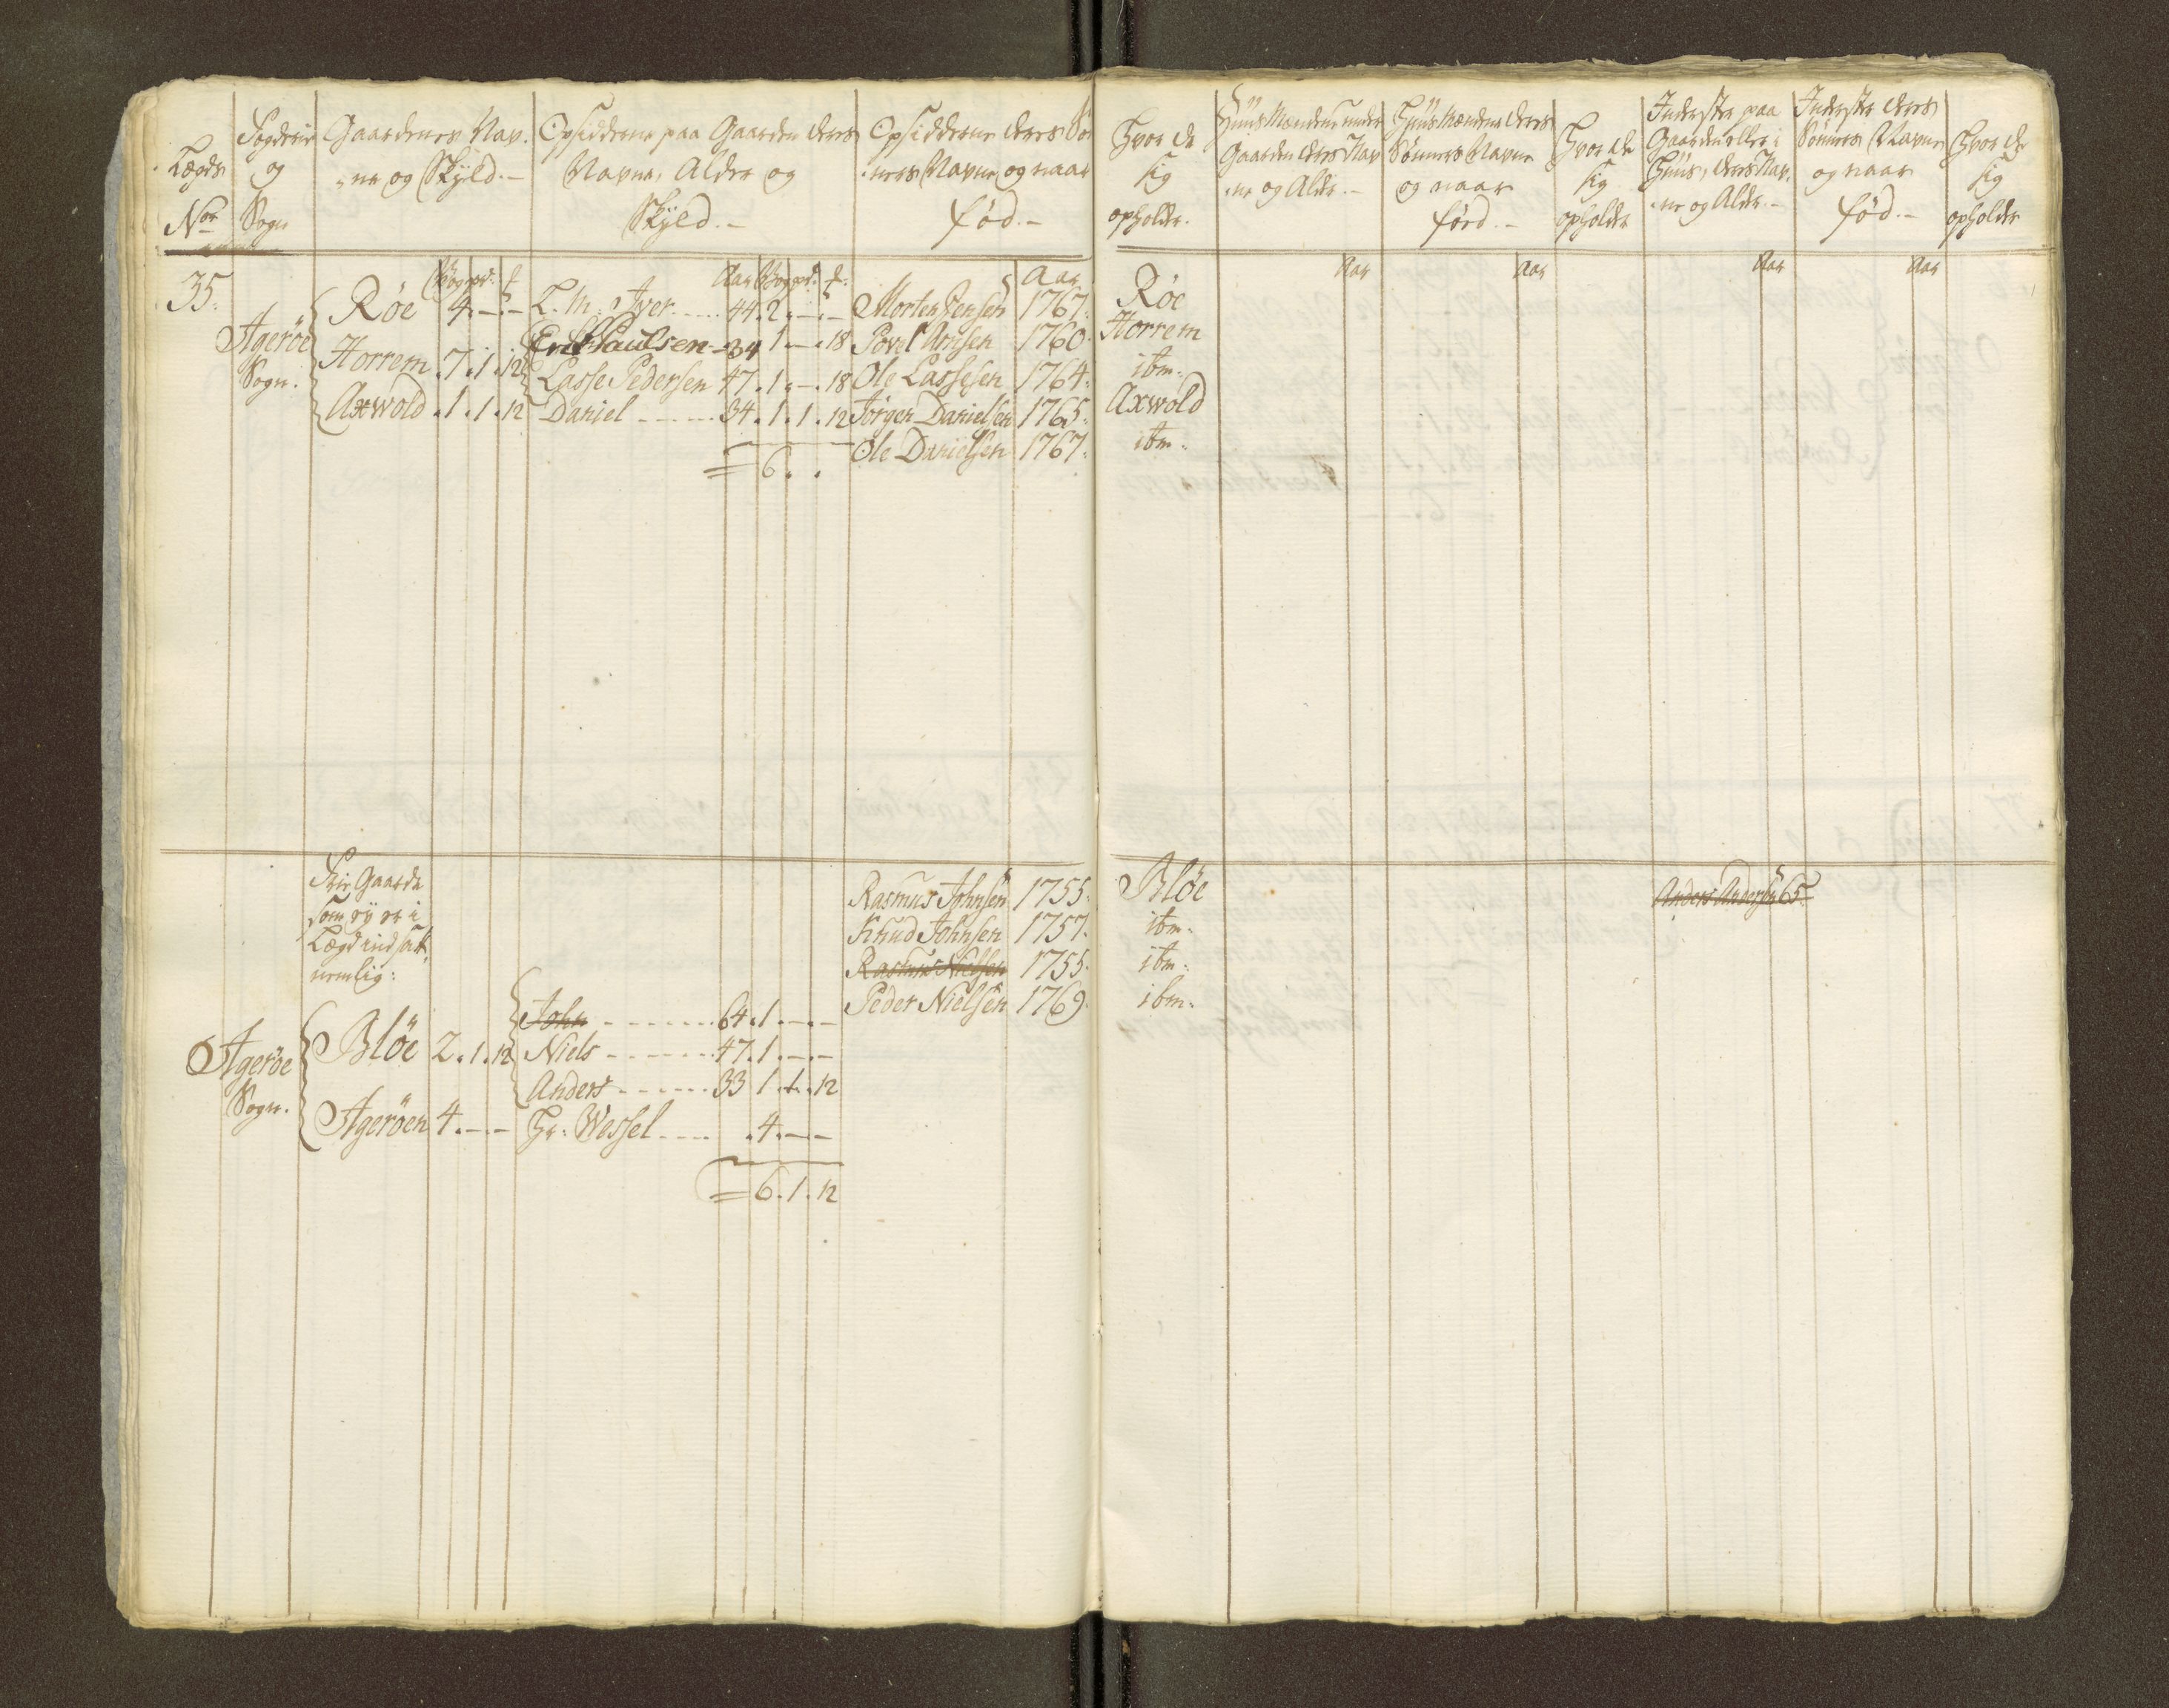 Lægds
No
Fogderie
og
Sogn
Gaardenes Nav-
ne og Skyld.-
Opsiddernes paa Gaarden deres
Navne, Alder og
Skyld.-
Opsiddernes deres Søn-
ners Navne og naar
fød.-
Aar Aar
35. Røe 4.-.- L. M. Iver 44. 2.-.- Morten Jensen 1767.
Agerøe Horrem 7.1.12 Erik Paulsen 34 1.-.18 Povel 1760.
Sogn. Lasse Pedersen 47.1.-.18 Ole Lassesen 1764.
Axwold .1.1.12 Daniel 34.1.1.12 Jørgen Danielsen 1765.
= 6.. Ole Danielsen 1767.
Frie Gaarde
som ey er i
Lægd indsatt,
nemlig:
Rasmus Johnsen 1755.
Knud Johnsen 1757.
Rasmus Nielsen 1755.
Peder Nielsen 1769.
John 64.1.-.-
Agerøe Bløe 2.1.12 Niels 47.1.-.-
Sogn. Anders 33 1.1.12
Agerøen 4.-.- Hr: Wessel .4.-.-
= 6.1.12
Hvor de
sig
opholder.
Huusmændene under
Gaarden deres Nav-
ne og Alder.-
Huusmændene deres
Sønners Navne
og naar
fød.-
Hvor de
sig
opholder
Inderster paa
Gaarden eller i
Huus, deres Nav-
ne og Alder.-
Inderster deres
Sønners Navne
og naar
fød.-
Hvor de
sig
opholder
Aar Aar Aar Aar
Røe
Horrem
ibm.
Axwold
ibm.
Bløe Anders Andersen 65
ibm.
ibm.
ibm.